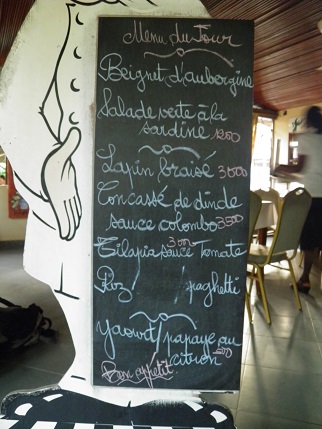 Menu du Jour
Beignet d'aubergine
Salade verte à la
sardine 1200
Lapin braisé 3000
Concassé de dinde
sauce colombo 3500
Tilapia sauce Tomate
3000
Riz / spaghetti
yaourt/papaye au
citron
Bon appétit.